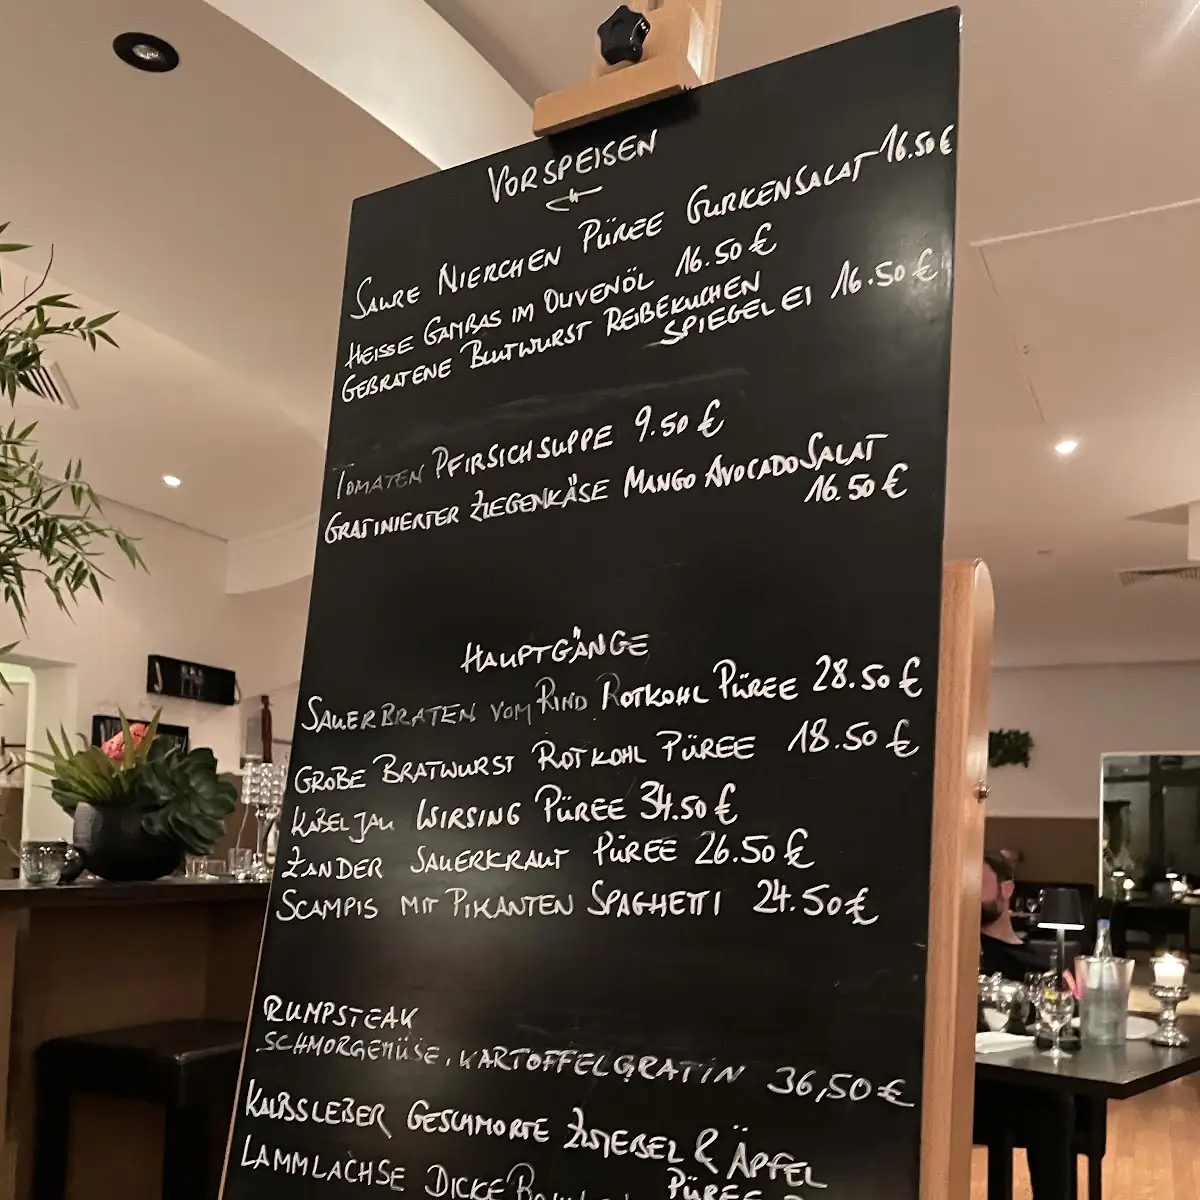 VORSPEISEN
SAURE NIERCHEN PÜREE GURKENSALAT 16.50 €
HEISSE GAMBAS IM OLIVENÖL 16.50 €
GEBRATENE BLUTWURST REIBEKUCHEN
SPIEGELEI 16.50 €
TOMATEN PFIRSICHSUPPE 9.50 €
GRATINIERTER ZIEGENKÄSE MANGO AVOCADO SALAT
16.50 €
HAUPTGÄNGE
SAUERBRATEN VOM RIND ROTKOHL PÜREE 28.50 €
GROBE BRATWURST ROTKOHL PÜREE 18.50 €
KABELJAU WIRSING PÜREE 34.50 €
ZANDER SAUERKRAUT PÜREE 26.50 €
SCAMPIS MIT PIKANTEN SPAGHETTI 24.50 €
RUMPSTEAK
SCHMORGEMÜSE, KARTOFFELGRATIN 36,50 €
KALBSLEBER GESCHMORTE ZWIEBEL & ÄPFEL
PÜREE
LAMMLACHSE DICKE